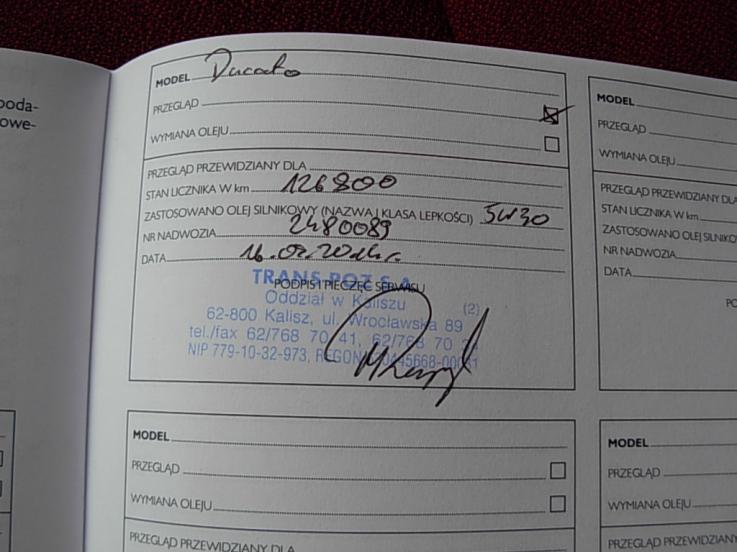 poda-
owe-
MODEL Ducato
PRZEGLĄD
WYMIANA OLEJU
PRZEGLĄD PRZEWIDZIANY DLA
STAN LICZNIKA W km 126800
ZASTOSOWANO OLEJ SILNIKOWY (NAZWA I KLASA LEPKOŚCI) 5W30
NR NADWOZIA 2480089
DATA 16.07.2014r.
PODPIS I PIECZĘĆ SERWISU
TRANS-POZ S.A.
Oddział w Kaliszu (2)
62-800 Kalisz, ul. Wrocławska 89
tel./fax 62/768 70 41, 62/768 70
NIP 779-10-32-973, REGON
MODEL
PRZEGLĄD
WYMIANA OLEJU
PRZEGLĄD PRZEWIDZIANY DLA
STAN LICZNIKA W km
ZASTOSOWANO OLEJ SILNIKO
NR NADWOZIA
DATA
PO
MODEL
PRZEGLĄD
WYMIANA OLEJU
PRZEGLĄD PRZEWIDZIANY DLA
MODEL
PRZEGLĄD
WYMIANA OLEJU
PRZEGLĄD PRZEWIDZIANY